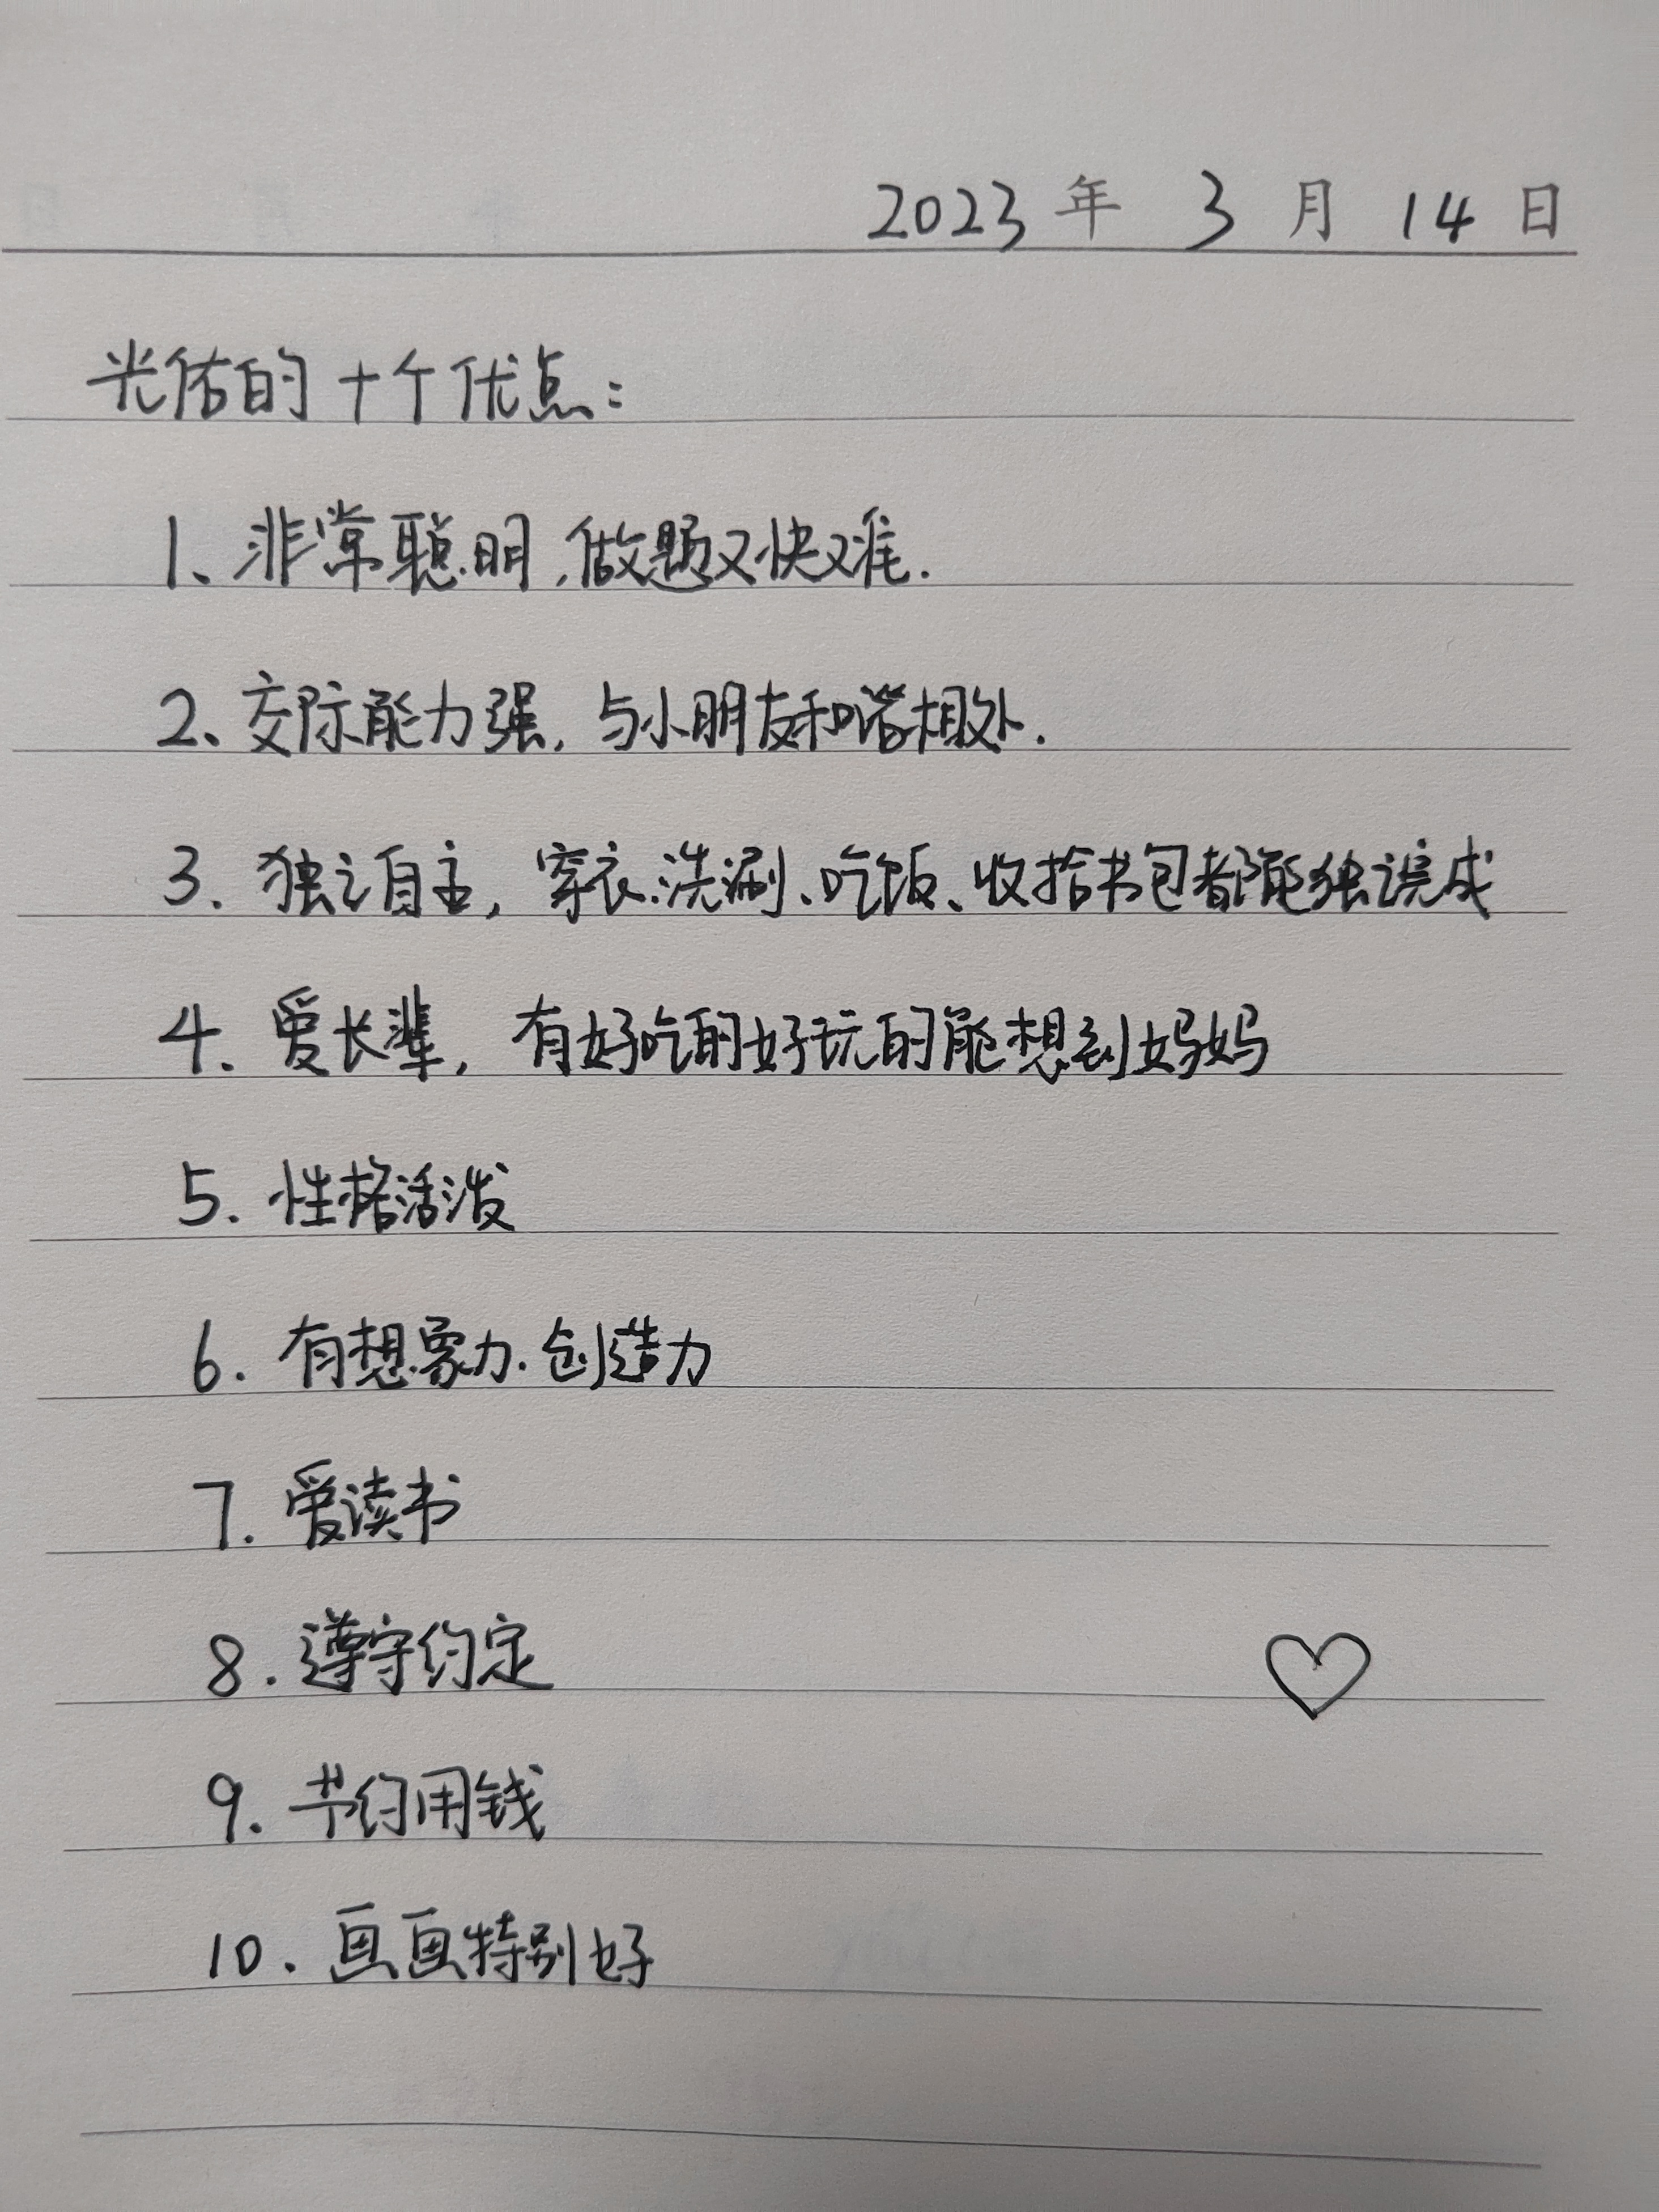 2023年 3月 14日
光佑的十个优点:
1、非常聪明,做题又快又准.
2、交际能力强,与小朋友和谐相处.
3. 独立自主,穿衣.洗涮、吃饭、收拾书包都能独立完成
4. 爱长辈,有好吃的好玩的能想到妈妈
5. 性格活泼
6. 有想象力.创造力
7. 爱读书
8. 遵守约定
9. 节约用钱
10. 画画特别好